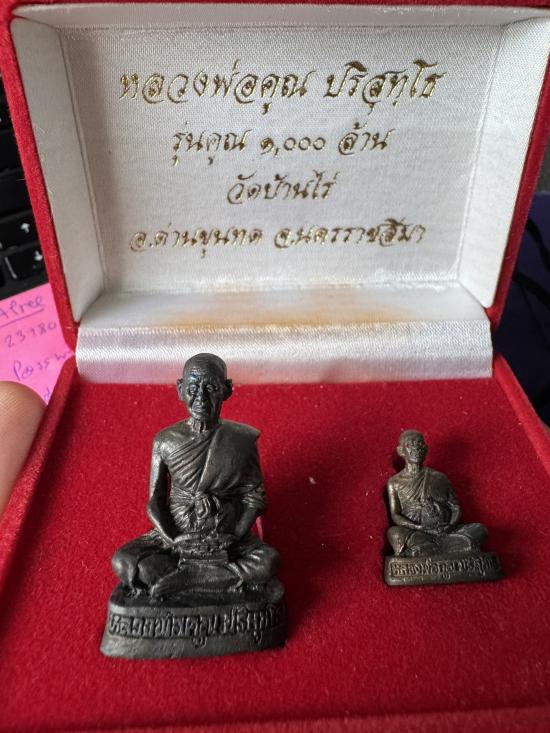 หลวงพ่อคูณ ปริสุทฺโธ
รุ่นคูณ ๑,๐๐๐ ล้าน
วัดบ้านไร่
อ.ด่านขุนทด จ.นครราชสีมา
Afree
23980
หลวงพ่อคูณ ปริสุทฺโธ
หลวงพ่อคูณ ปริสุทฺโธ